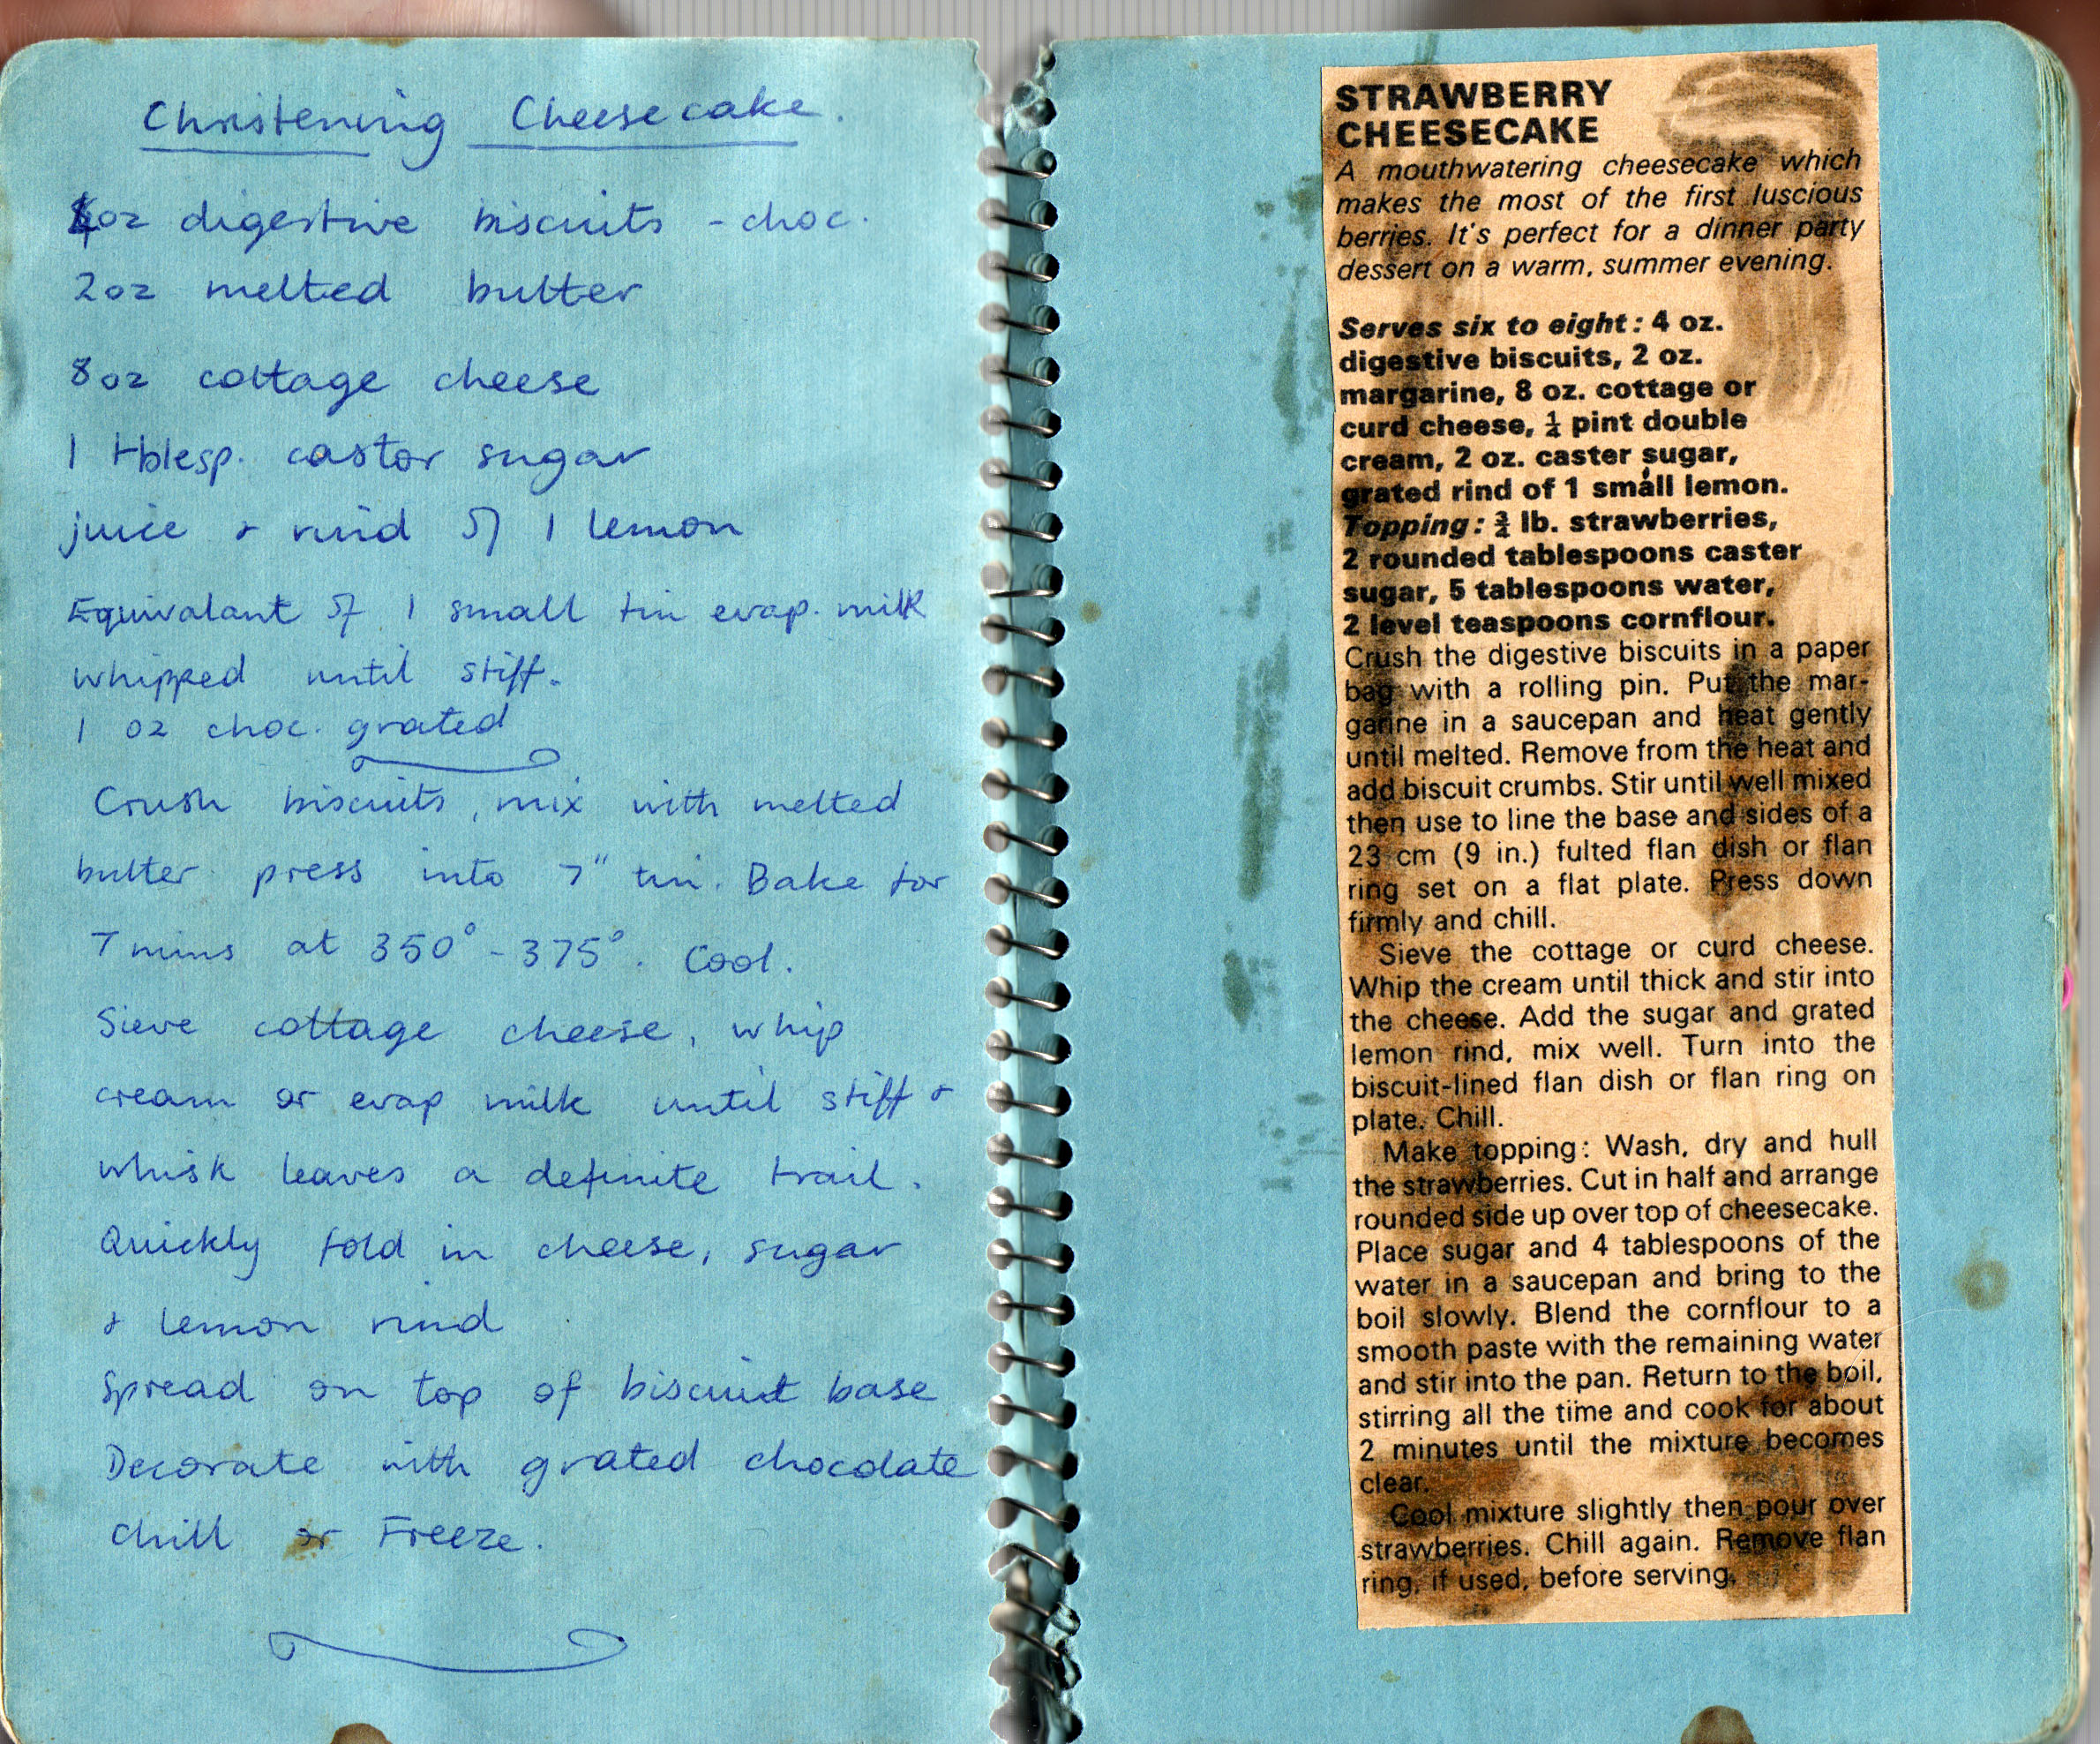 Christening Cheesecake.
4oz digestive biscuits - choc.
2oz melted butter
8oz cottage cheese
1 tblesp. castor sugar
juice & rind of 1 lemon
Equivalant of 1 small tin evap. milk
whipped until stiff.
1 oz choc. grated
Crush biscuits, mix with melted
butter press into 7" tin. Bake for
7 mins at 350° - 375°. Cool.
Sieve cottage cheese, whip
cream or evap milk until stiff &
whisk leaves a definite trail.
Quickly fold in cheese, sugar
& lemon rind
Spread on top of biscuit base
Decorate with grated chocolate
Chill or Freeze.
STRAWBERRY
CHEESECAKE
A mouthwatering cheesecake which
makes the most of the first luscious
berries. It's perfect for a dinner party
dessert on a warm, summer evening.
Serves six to eight: 4 oz.
digestive biscuits, 2 oz.
margarine, 8 oz. cottage or
curd cheese, ¼ pint double
cream, 2 oz. caster sugar,
grated rind of 1 small lemon.
Topping: ¾ lb. strawberries,
2 rounded tablespoons caster
sugar, 5 tablespoons water,
2 level teaspoons cornflour.
Crush the digestive biscuits in a paper
bag with a rolling pin. Put the mar-
garine in a saucepan and heat gently
until melted. Remove from the heat and
add biscuit crumbs. Stir until well mixed
then use to line the base and sides of a
23 cm (9 in.) fulted flan dish or flan
ring set on a flat plate. Press down
firmly and chill.
Sieve the cottage or curd cheese.
Whip the cream until thick and stir into
the cheese. Add the sugar and grated
lemon rind, mix well. Turn into the
biscuit-lined flan dish or flan ring on
plate. Chill.
Make topping: Wash, dry and hull
the strawberries. Cut in half and arrange
rounded side up over top of cheesecake.
Place sugar and 4 tablespoons of the
water in a saucepan and bring to the
boil slowly. Blend the cornflour to a
smooth paste with the remaining water
and stir into the pan. Return to the boil,
stirring all the time and cook for about
2 minutes until the mixture becomes
clear.
Cool mixture slightly then pour over
strawberries. Chill again. Remove flan
ring, if used, before serving.